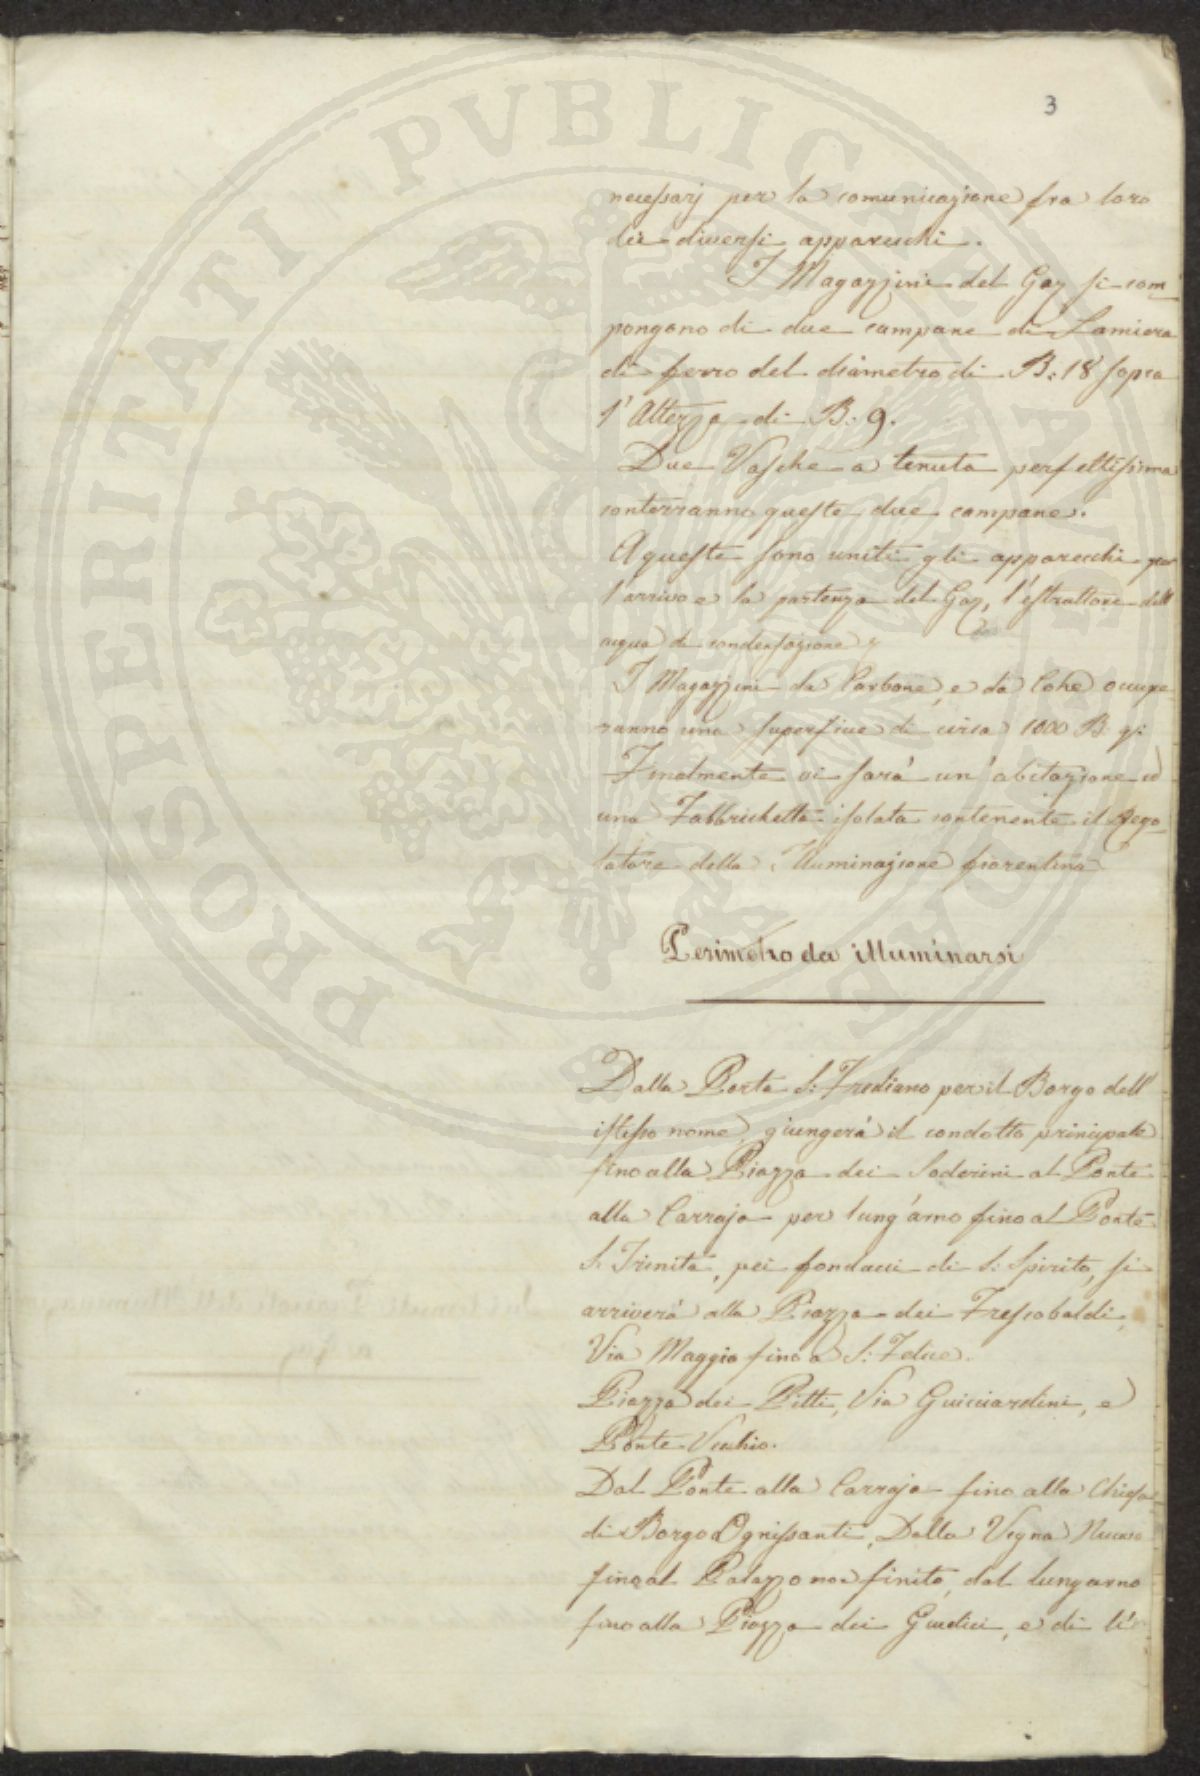 3
necessarj per la comunicazione fra loro
dei diversi apparecchi.
I Magazzini del Gaz si com-
pongono di due campane di Lamiera
di ferro del diametro di B: 18 sopra
l'Altezza di B: 9.
Due Vasche a tenuta perfettissima
conterranno queste due campane.
A queste sono uniti gli apparecchi per
l'arrivo e la partenza del Gaz, l'estrattore dell'
acqua di condensazione
I Magazzini da Carbone, e da Coke occupe
ranno una superficie di circa 1000 B. q:
Finalmente vi sarà un'abitazione ed
una Fabbrichetta isolata contenente il Rego-
latore della Illuminazione fiorentina
Perimetro da illuminarsi
Dalla Porta S: Frediano per il Borgo dell'
istesso nome, giungerà il condotto principale
fino alla Piazza dei Soderini al Ponte
alla Carraja per lung'arno fino al Ponte
S. Trinità, pei fondacci di S: Spirito, si
arriverà alla Piazza dei Frescobaldi,
Via Maggio fino a S: Felice.
Piazza dei Pitti, Via Guicciardini, e
Ponte Vecchio.
Dal Ponte alla Carraja fino alla Chiesa
di Borgo Ognissanti, Dalla Vigna Nuova
fino al Palazzo non finito, dal lungarno
fino alla Piazza dei Giudici, e di lì
PROSPERITATI PVBLICAE AVGENDAE